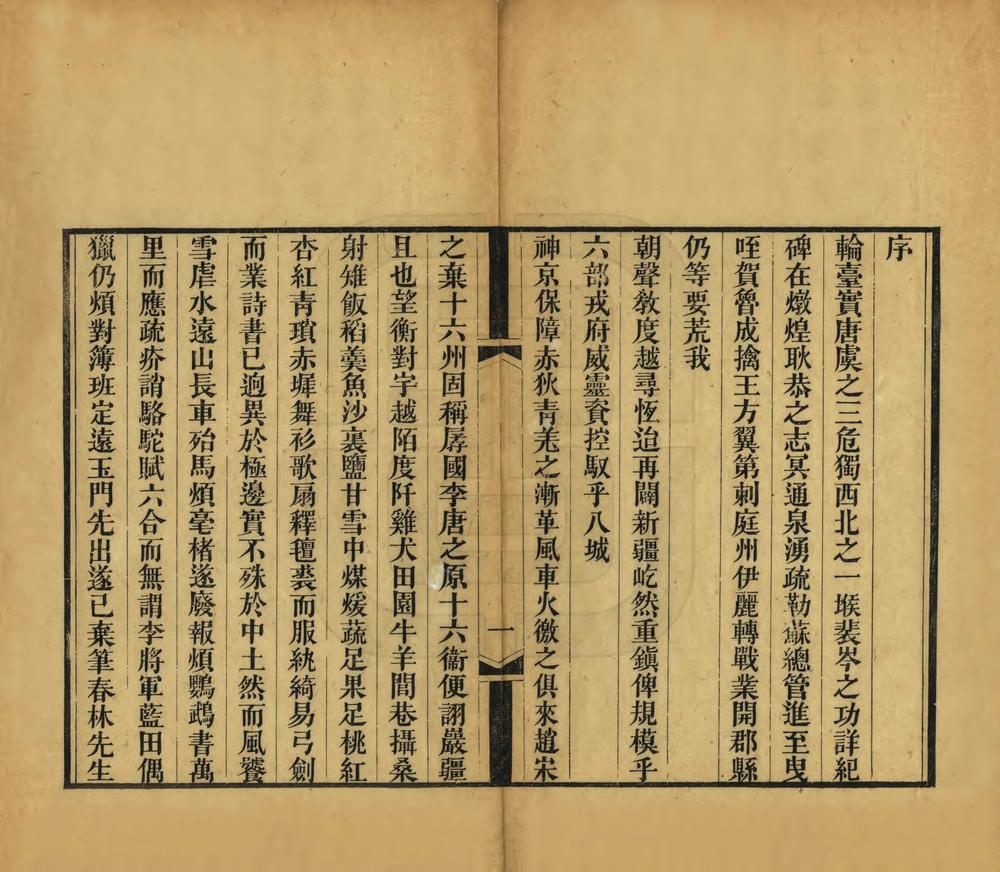 序
輪臺實唐虞之三危獨西北之一堠裴岑之功詳紀
碑在燉煌耿恭之志冥通泉湧疏勒蘇總管進至曳
咥賀魯成擒王方翼第刺庭州伊麗轉戰業開郡縣
仍等要荒我
朝聲敎度越尋恆迨再闢新疆屹然重鎭俾規模乎
六部戎府威靈資控馭乎八城
神京保障赤狄靑羌之漸革風車火徼之俱來趙宋
一
之棄十六州固稱孱國李唐之原十六衞便詡巖疆
且也望衡對宇越陌度阡雞犬田園牛羊閭巷攝桑
射雉飯稻羹魚沙裏鹽甘雪中煤煖蔬足果足桃紅
杏紅靑瑣赤墀舞衫歌扇釋氊裘而服紈綺易弓劍
而業詩書已逈異於極邊實不殊於中土然而風饕
雪虐水遠山長車殆馬煩毫楮遂廢報煩鸚鵡書萬
里而應疏夯誚駱駝賦六合而無謂李將軍藍田偶
獵仍煩對簿班定遠玉門先出遂已棄筆春林先生